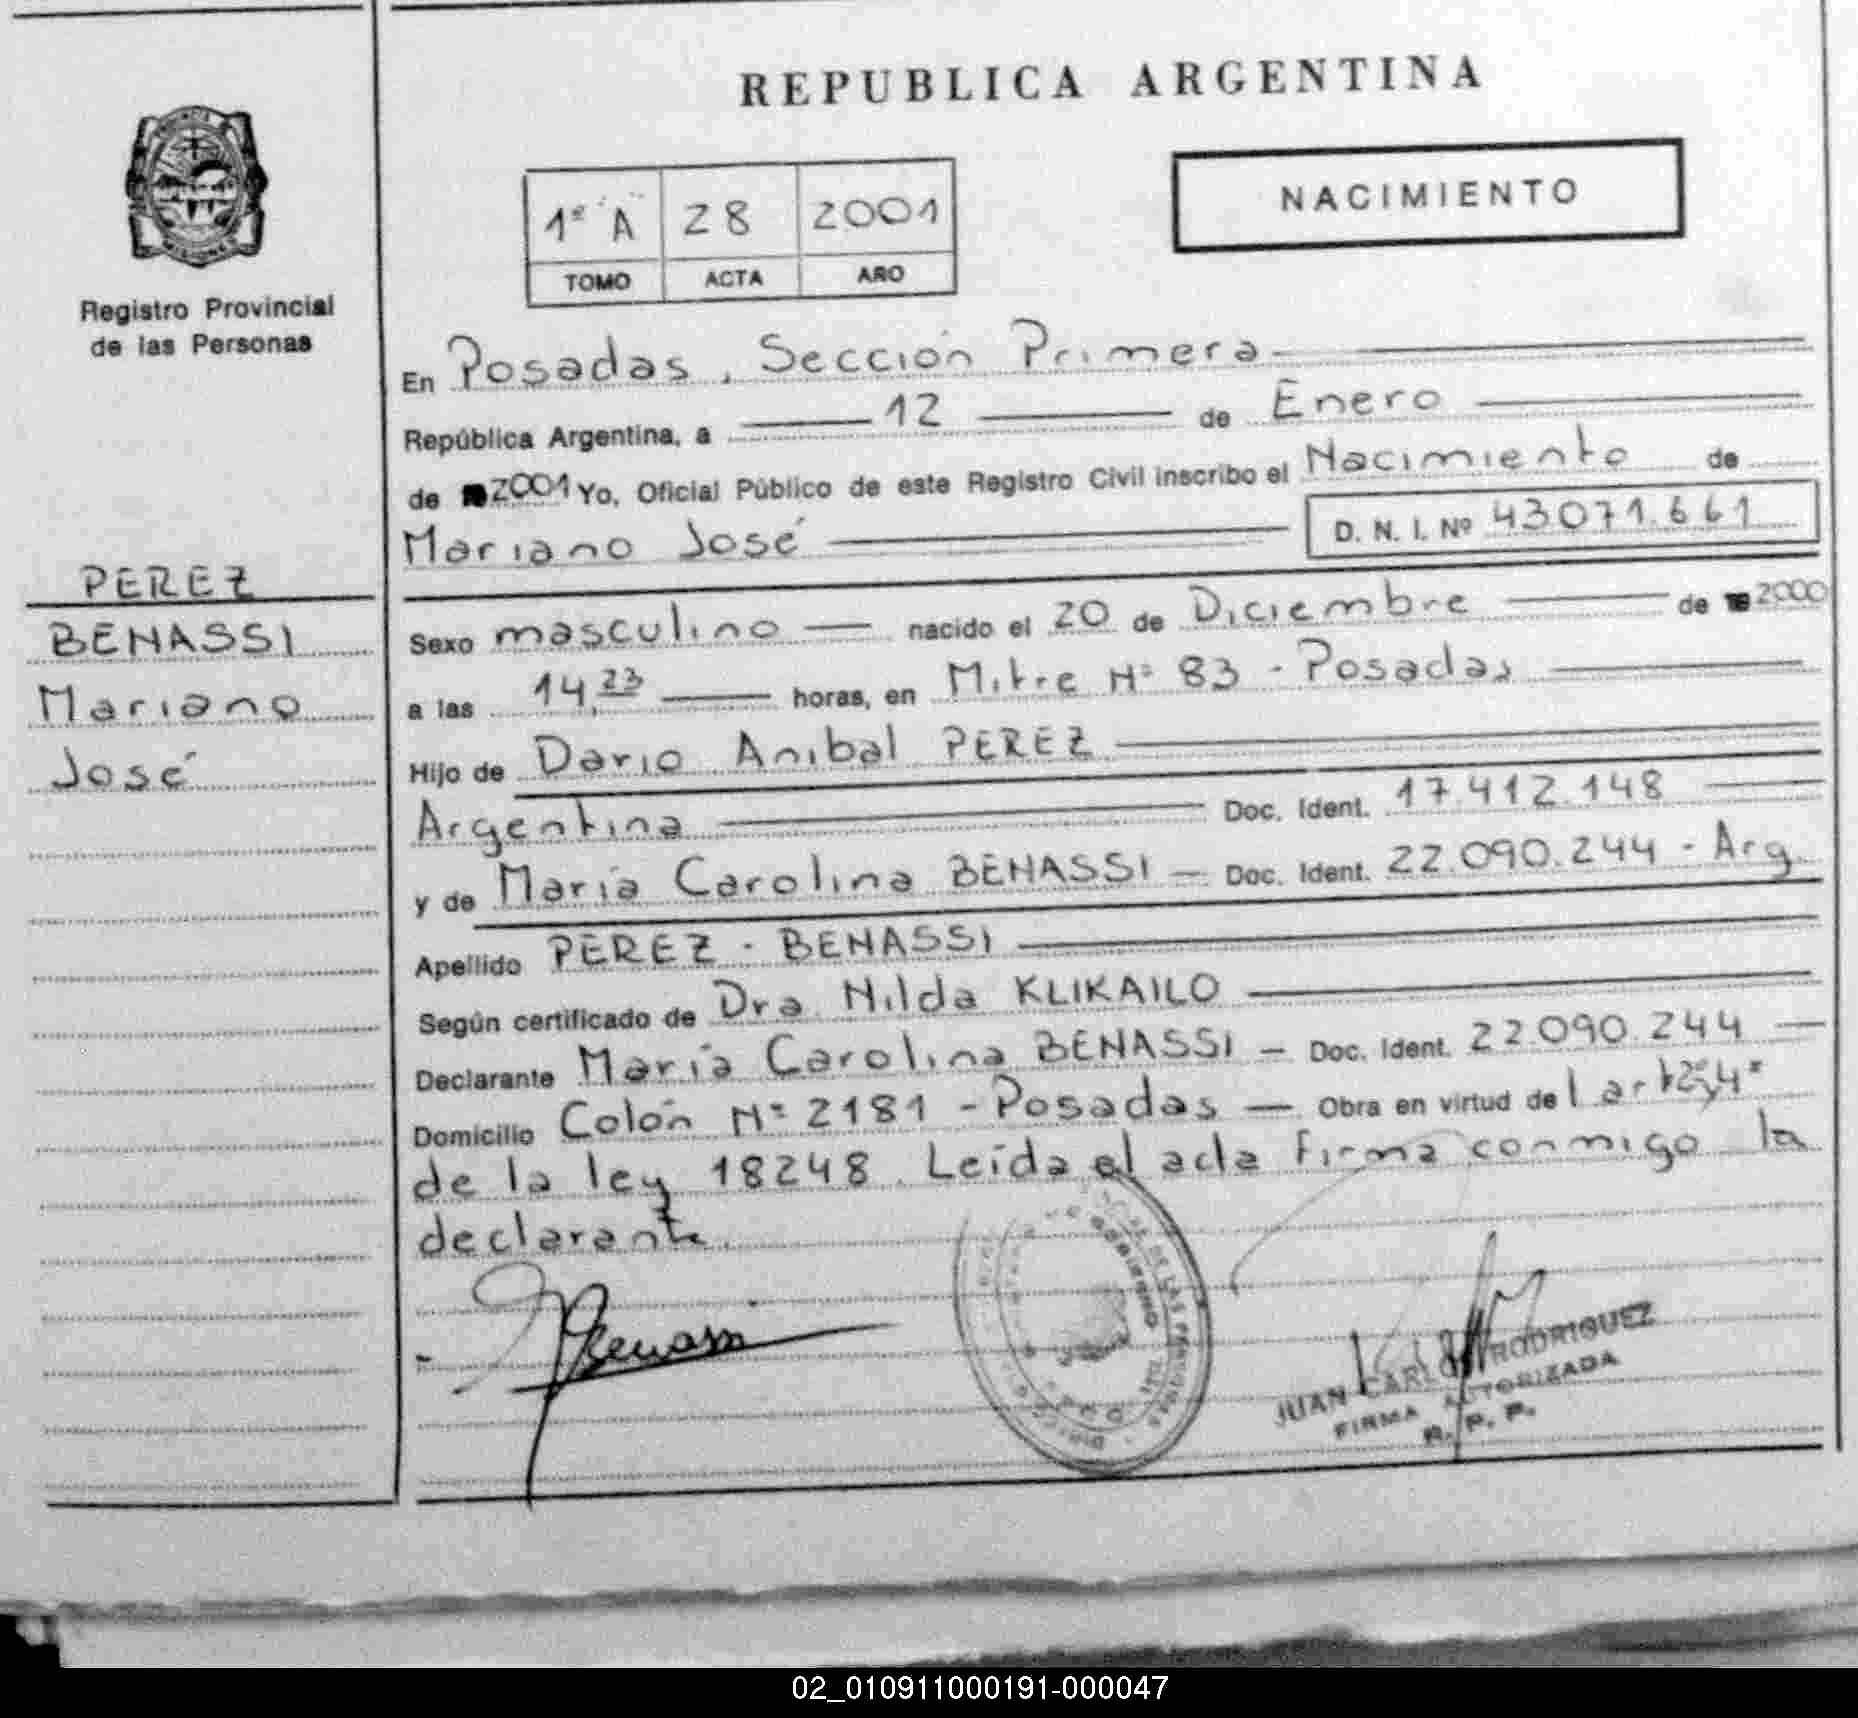 REPUBLICA ARGENTINA
NACIMIENTO
1º "A" 28 2001
TOMO ACTA AÑO
Registro Provincial
de las Personas
PEREZ
BENASSI
Mariano
José
En Posadas, Sección Primera
República Argentina, a 12 de Enero
de 2001 Yo, Oficial Público de este Registro Civil inscribo el Nacimiento de
Mariano José D. N. I. Nº 43071.661
Sexo masculino nacido el 20 de Diciembre de 2000
a las 14,23 horas, en Mitre Nº 83 - Posadas
Hijo de Dario Anibal PEREZ
Argentina Doc. Ident. 17.412.148
y de María Carolina BENASSI - Doc. Ident. 22.090.244 - Arg.
Apellido PEREZ - BENASSI
Según certificado de Dra. Nilda KLIKAILO
Declarante María Carolina BENASSI - Doc. Ident. 22.090.244
Domicilio Colón Nº 2181 - Posadas - Obra en virtud del art 2º y 4º
de la ley 18248. Leída el acta firma conmigo la
declarante.
JUAN CARLOS RODRIGUEZ
FIRMA AUTORIZADA
R. P. P.
02_010911000191-000047